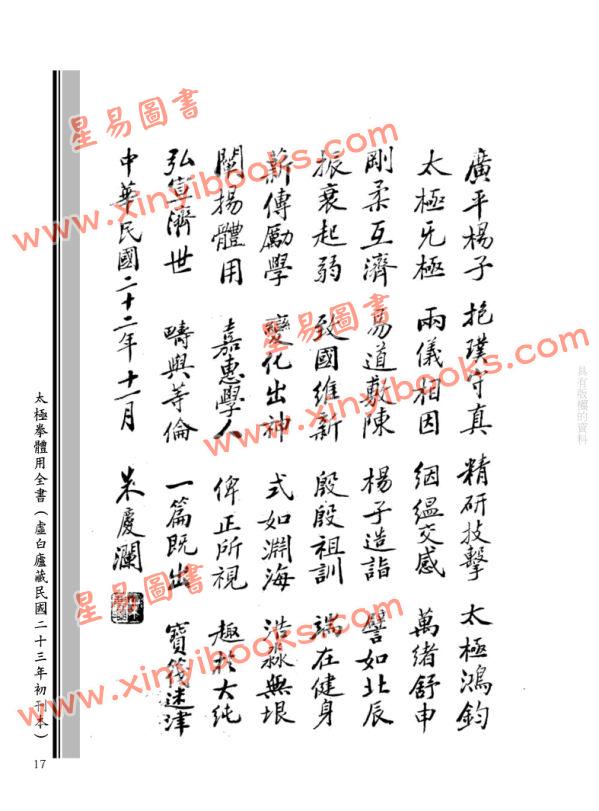 廣平楊子 抱璞守真 精研技擊 太極鴻鈞
太極無極 兩儀相因 絪縕交感 萬緒舒申
剛柔互濟 易道敷陳 楊子造詣 譬如北辰
振衰起弱 致國維新 殷殷祖訓 端在健身
薪傳勵學 變化出神 式如淵海 浩淼無垠
闡揚體用 嘉惠學人 俾正所視 趣於大純
弘宣濟世 疇與等倫 一篇既出 寶筏迷津
中華民國二十二年十一月 朱慶瀾
太極拳體用全書(虛白廬藏民國二十三年初刊本)
17
具有版權的資料
星易圖書
www.xinyibooks.com
星易圖書
www.xinyibooks.com
星易圖書
www.xinyibooks.com